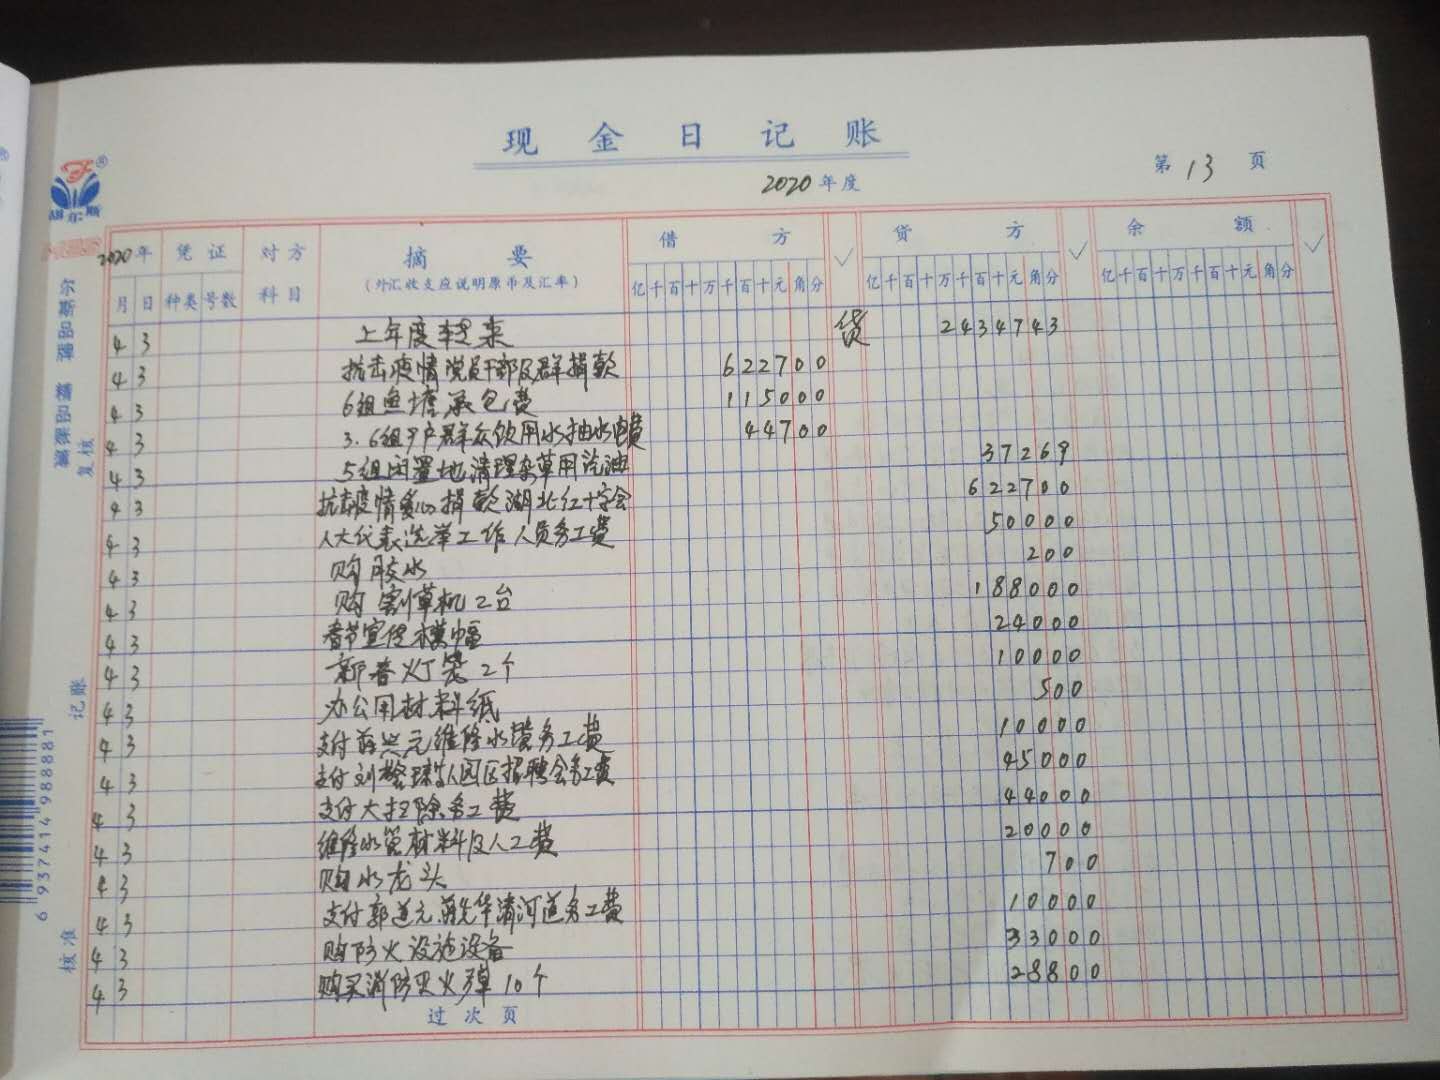 现金日记账
2020年度
第13页
2020年 凭证 对方 摘要 借方 √ 贷方 √ 余额 √
月 日 种类 号数 科目 (外汇收支应说明原币及汇率) 亿千百十万千百十元角分 亿千百十万千百十元角分 亿千百十万千百十元角分
4 3 上年度结来 贷 2434743
4 3 抗击疫情党员干部及群捐款 622700
4 3 6组鱼塘承包费 115000
4 3 3.6组户群众饮用水抽水电费 44700
4 3 5组闲置地清理杂草用汽油 37269
4 3 抗击疫情爱心捐款湖北红十字会 622700
4 3 人大代表选举工作人员务工费 50000
4 3 购胶水 200
4 3 购割草机2台 188000
4 3 春节宣传横幅 24000
4 3 新春灯笼2个 10000
4 3 办公用材料纸 500
4 3 支付薛兴元维修水管务工费 10000
4 3 支付刘园区招聘会务工费 45000
4 3 支付大扫除务工费 44000
4 3 维修水管材料及人工费 20000
4 3 购水龙头 700
4 3 支付郭道元、蒋先华清河道务工费 10000
4 3 购防火设施设备 33000
4 3 购买消防灭火弹10个 28800
过次页
尔斯品牌 精品
复核
记账
核准
6 937414 988881